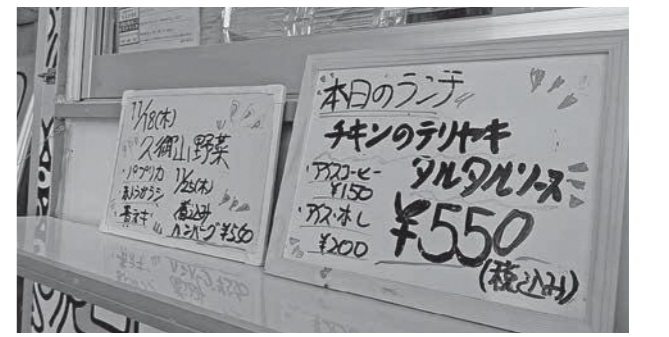 11/18(木)
久御山野菜
・パプリカ
・万願寺とうがらし
・青ネギ
11/25(木)
煮込み
ハンバーグ ¥550
本日のランチ
チキンのテリヤキ
タルタルソース
・アイスコーヒー
¥150
・アイス・氷し
¥200
¥550
(税込み)